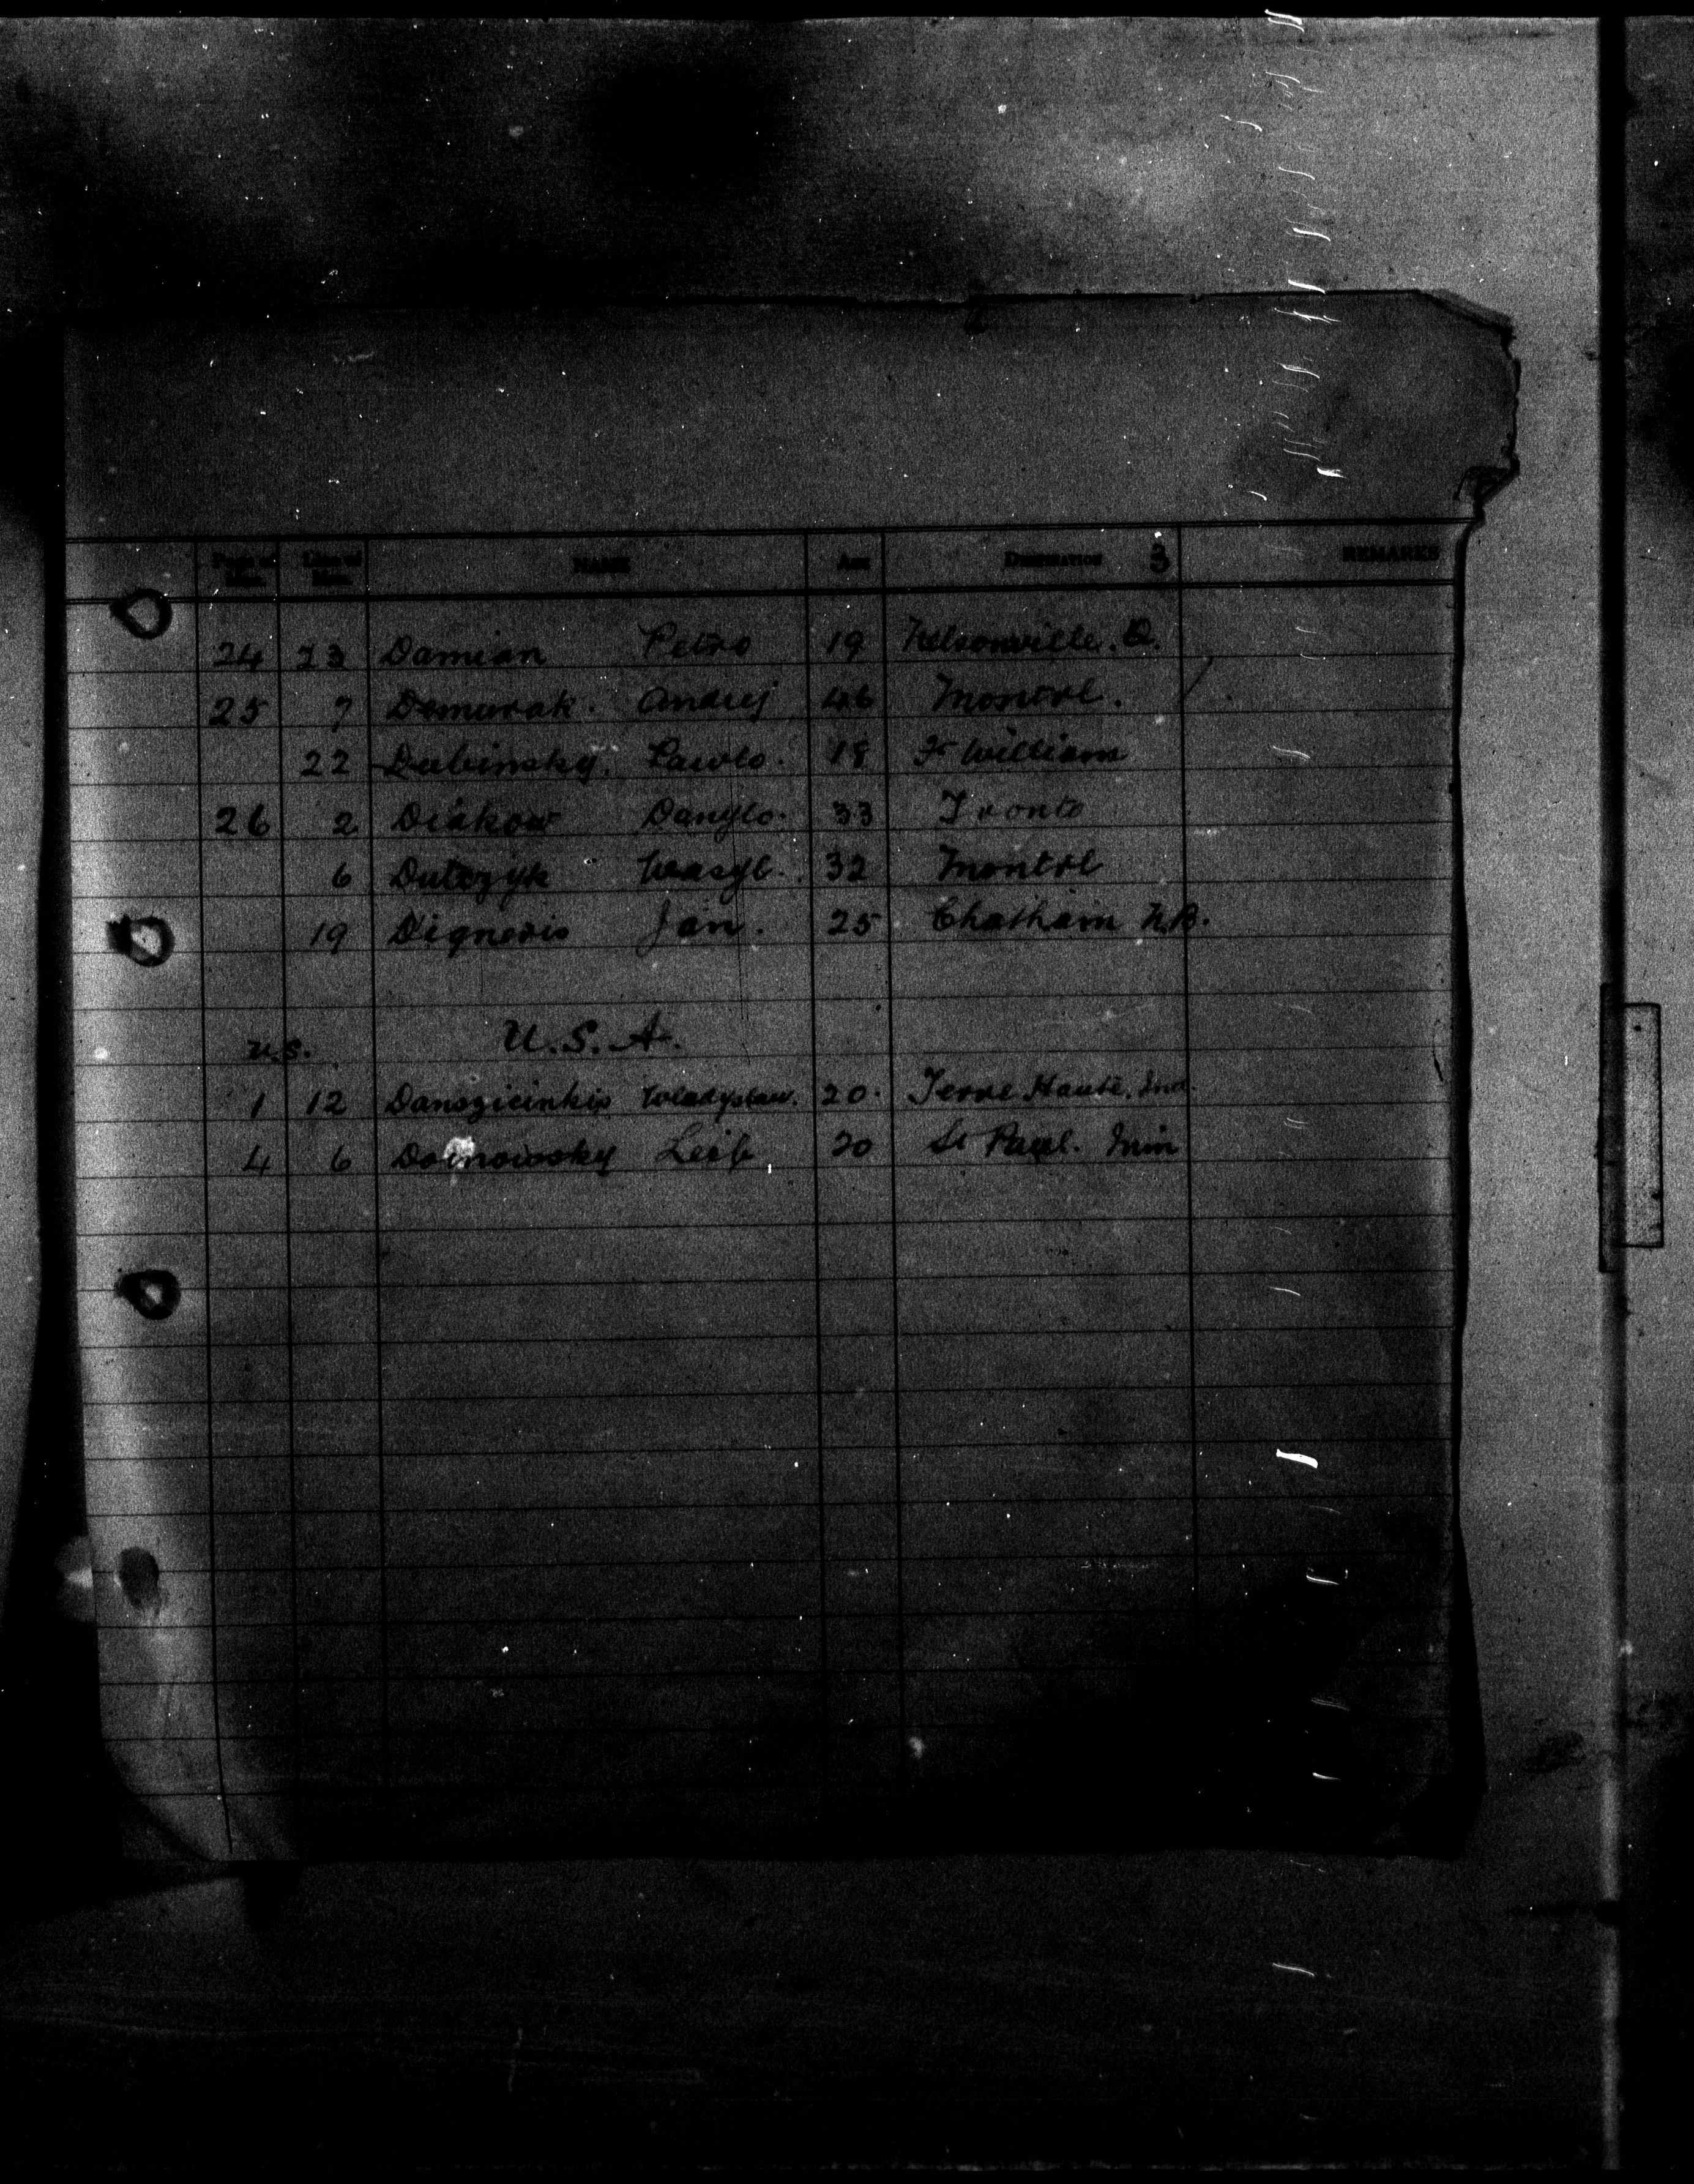 Page of Man. Line of Man. NAME AGE DESTINATION 3 REMARKS
24 23 Damian Petro 19 Nelsonville. O.
25 7 Demurak. Andrej 46 Montrl.
22 Dubinsky. Pawlo. 18 Ft William
26 2 Diakow Danylo. 33 Tronto
6 Dutczyk Wasyl. 32 Montrl
19 Digneris Jan. 25 Chatham N.B.
U.S. U.S.A.
1 12 Wladyslaw. 20. Terre Haute. Ind.
4 6 Leib 20 St Paul. Min